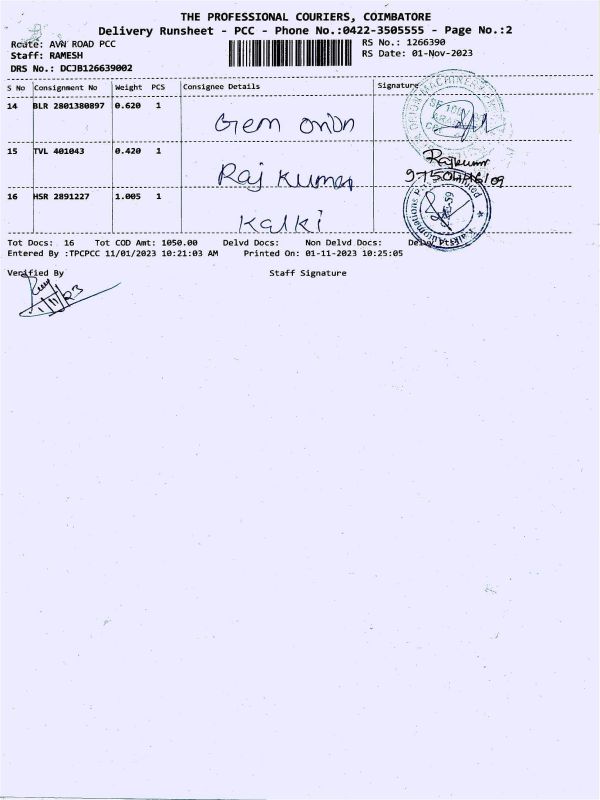 THE PROFESSIONAL COURIERS, COIMBATORE
Delivery Runsheet - PCC - Phone No.:0422-3505555 - Page No.:2
Route: AVN ROAD PCC
RS No.: 1266390
Staff: RAMESH
RS Date: 01-Nov-2023
DRS No.: DCJB126639002
S No Consignment No Weight PCS Consignee Details Signature
14 BLR 2801380897 0.620 1
Gem onion
15 TVL 401043 0.420 1
Raj Kumar
Rajkumar
16 HSR 2891227 1.005 1
Kalki
Tot Docs: 16 Tot COD Amt: 1050.00 Delvd Docs: Non Delvd Docs:
Entered By :TPCPCC 11/01/2023 10:21:03 AM Printed On: 01-11-2023 10:25:05
Verified By Staff Signature
1/11/23